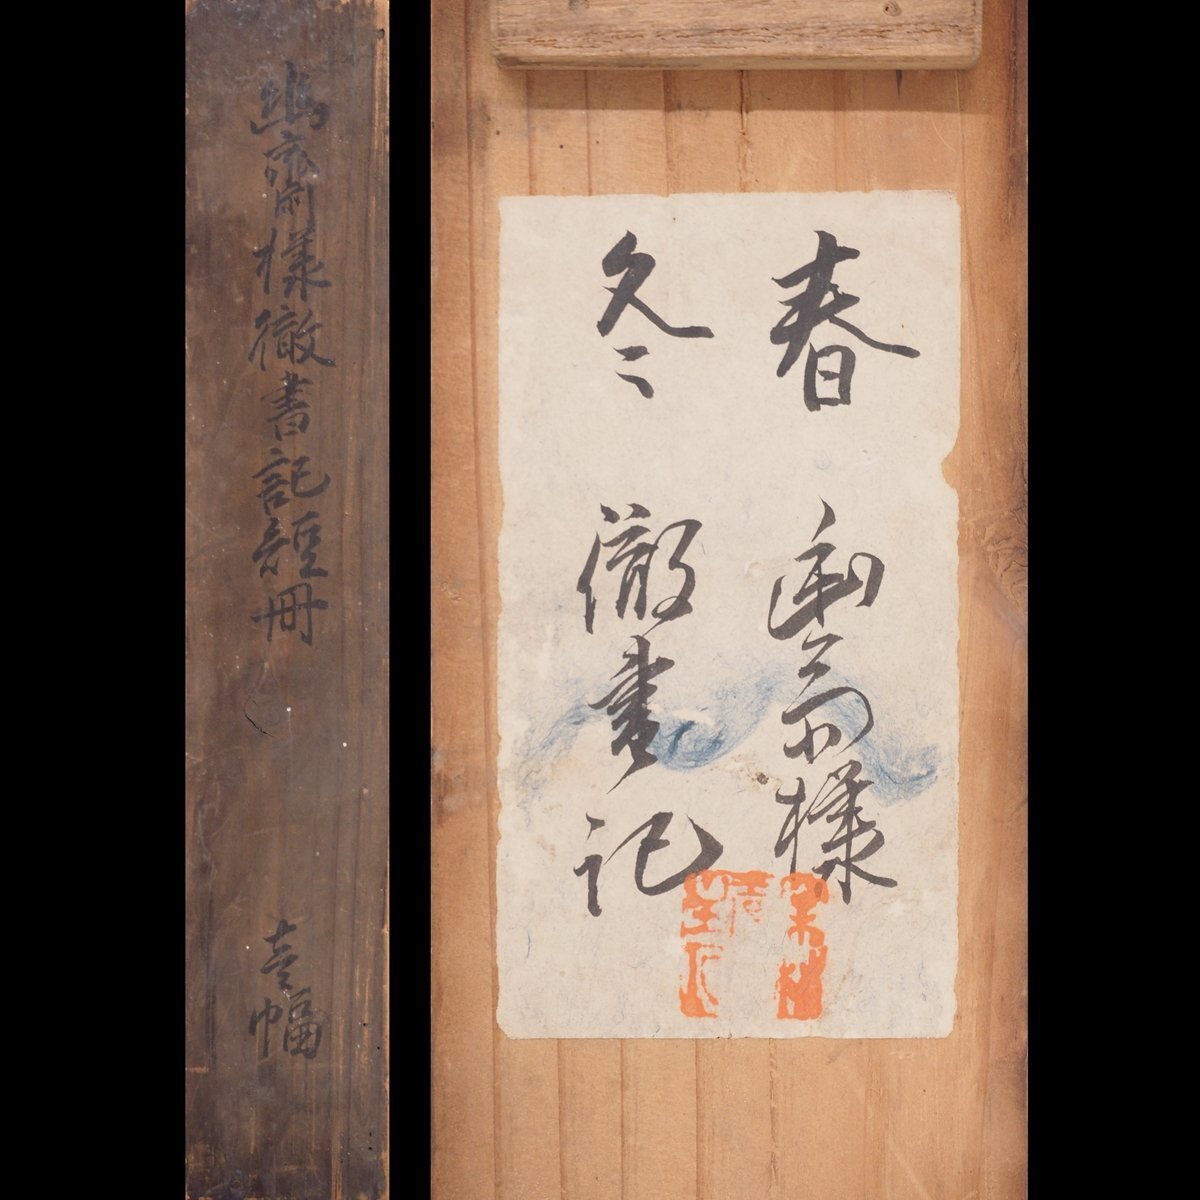 幽齋様徹書記短冊
壱幅
春 幽斎様
冬 徹書記